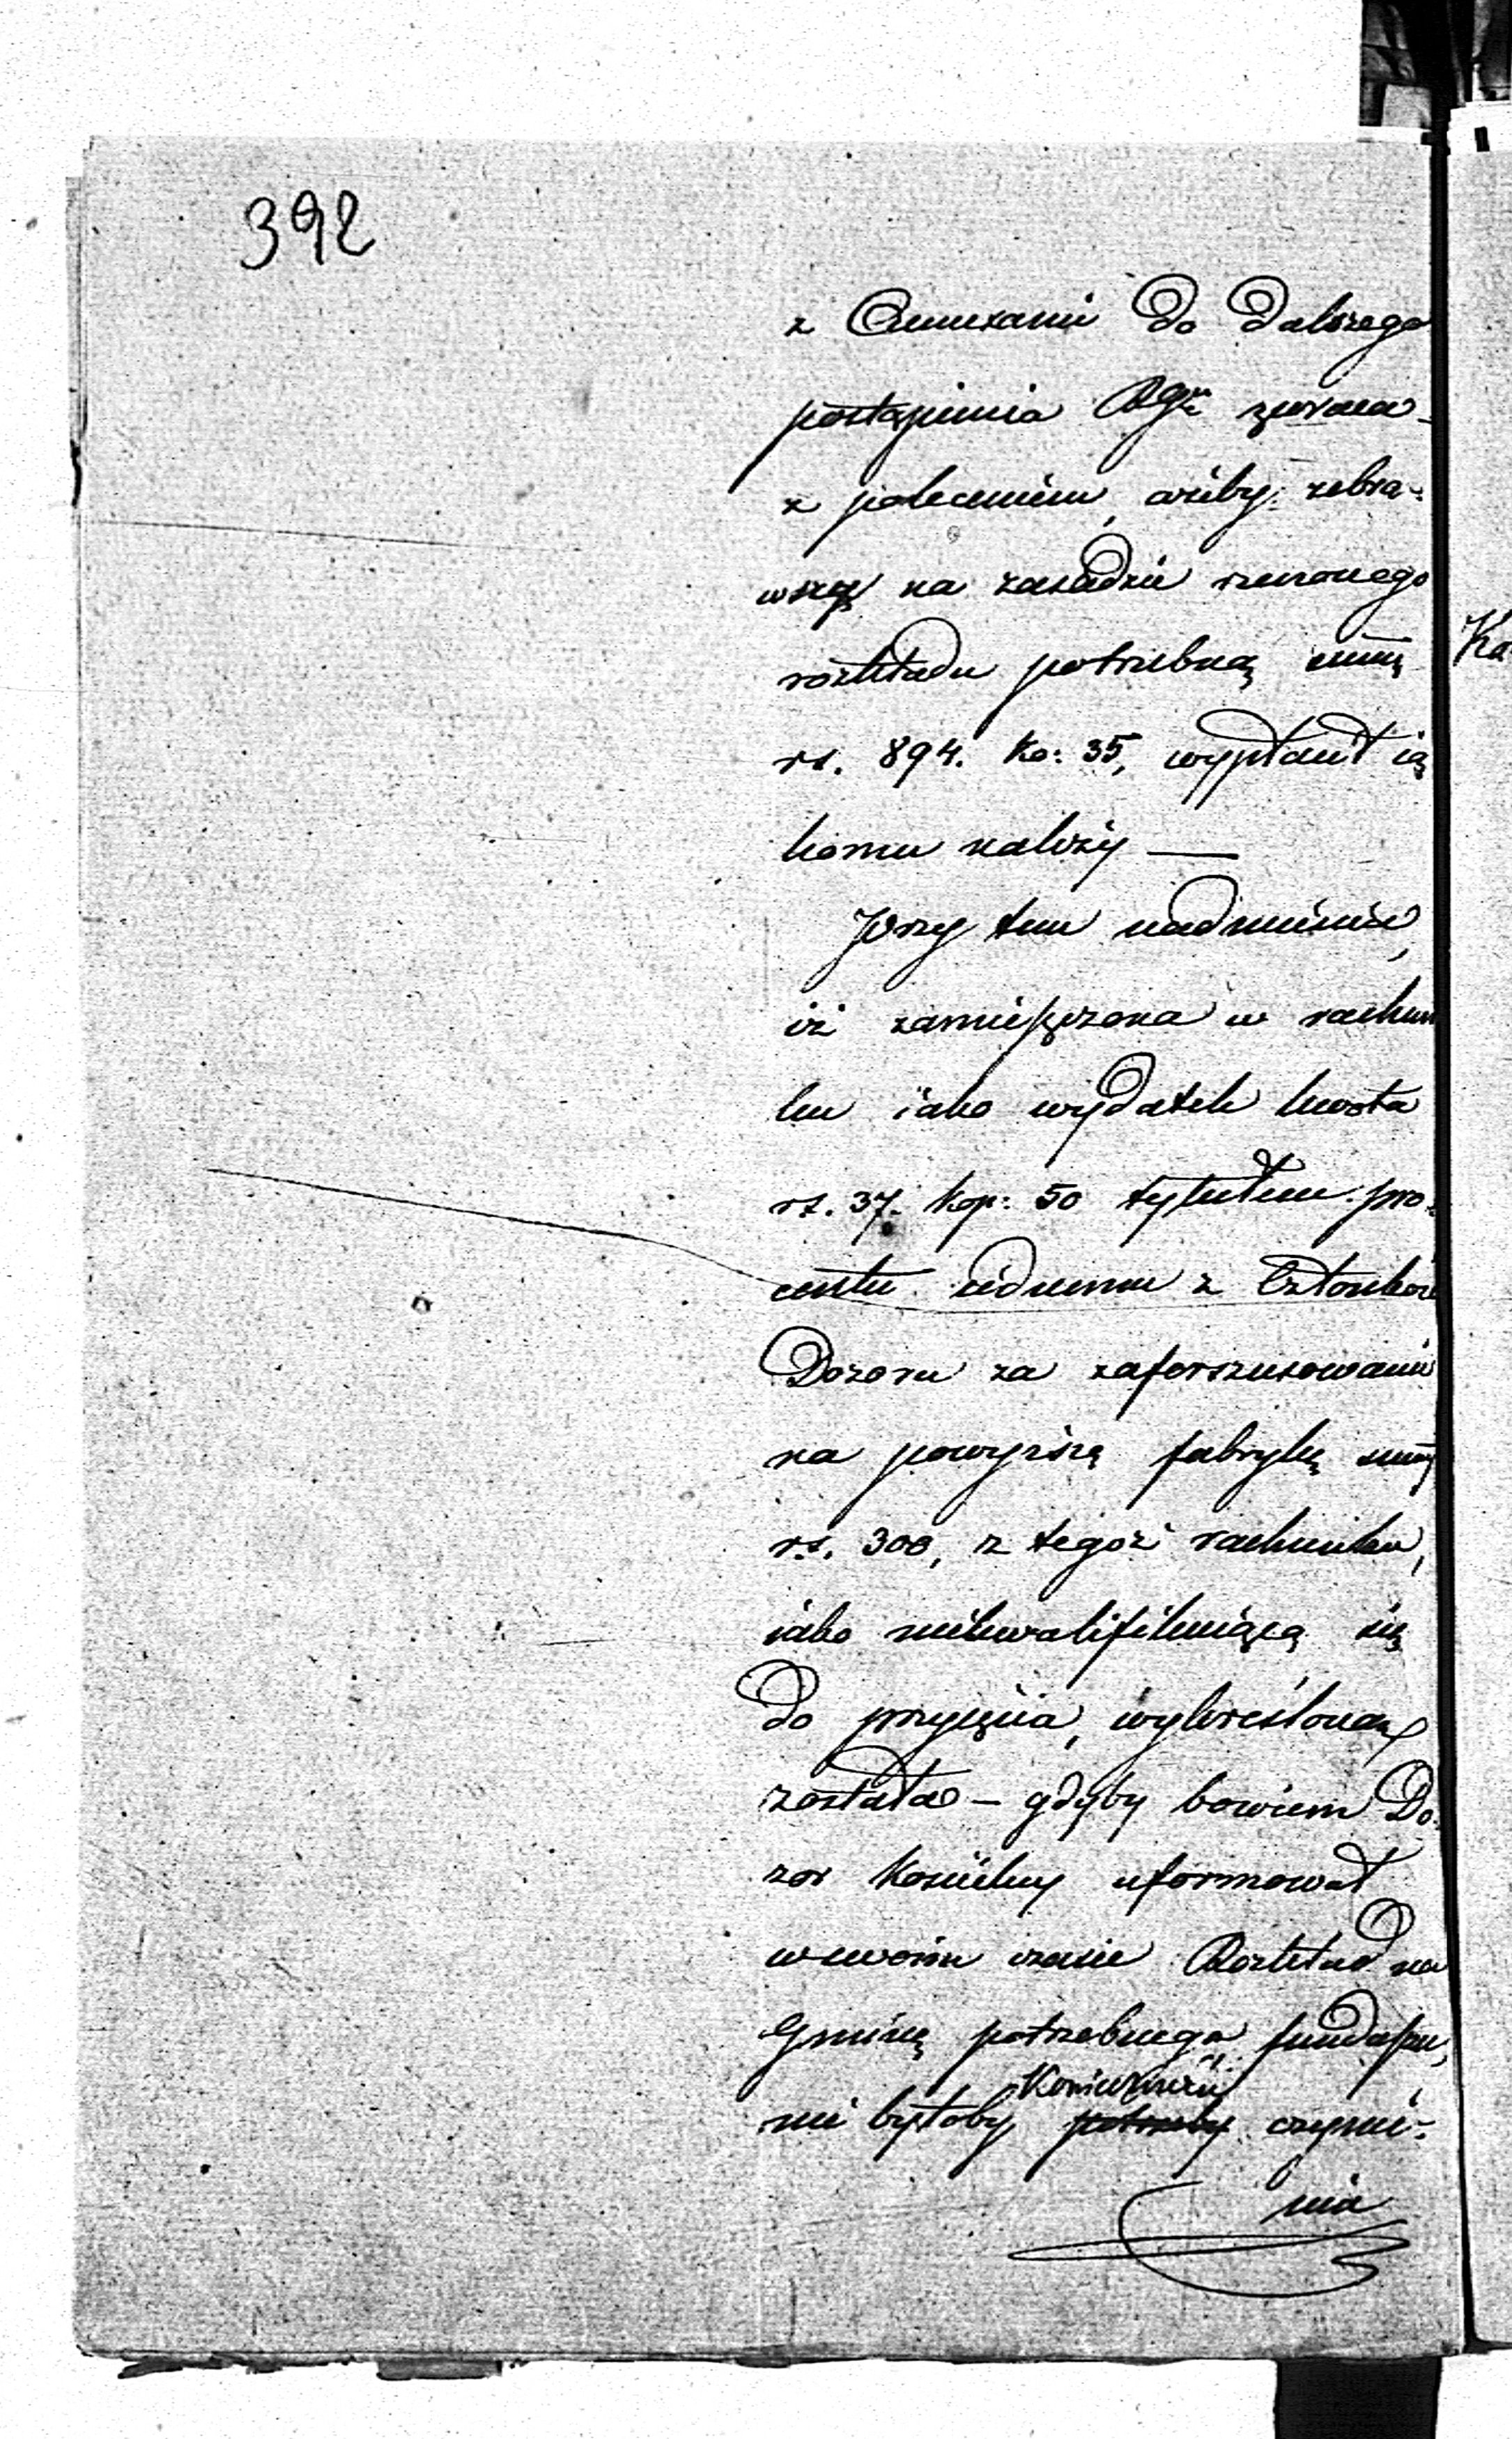 392
z Annexami do dalszego
postąpienia RGu zwraca
z poleceniem, ażeby zebra-
wszy na zasadzie rzeczonego
rozkładu potrzebną summę
rs. 894. ko: 35, wypłacił ią
komu należy —
Przy tem nadmienia,
iż zamieszczona w rachun
ku iako wydatek kwota
rs. 37. kop: 50 tytułem pro-
centu iednemu z Członków
Dozoru za zaforszusowanie
na powyższą fabrykę summy
rs. 300, z tegoż rachunku,
iako niekwalifikuiąca się
do przyięcia, wykreśloną
została – gdyby bowiem Do-
zor Kościelny uformował
w swoim czasie Rozkład na
Gminę potrzebnego funduszu,
Konieczności
nie byłoby potrzeby czynie-
nia
Ka